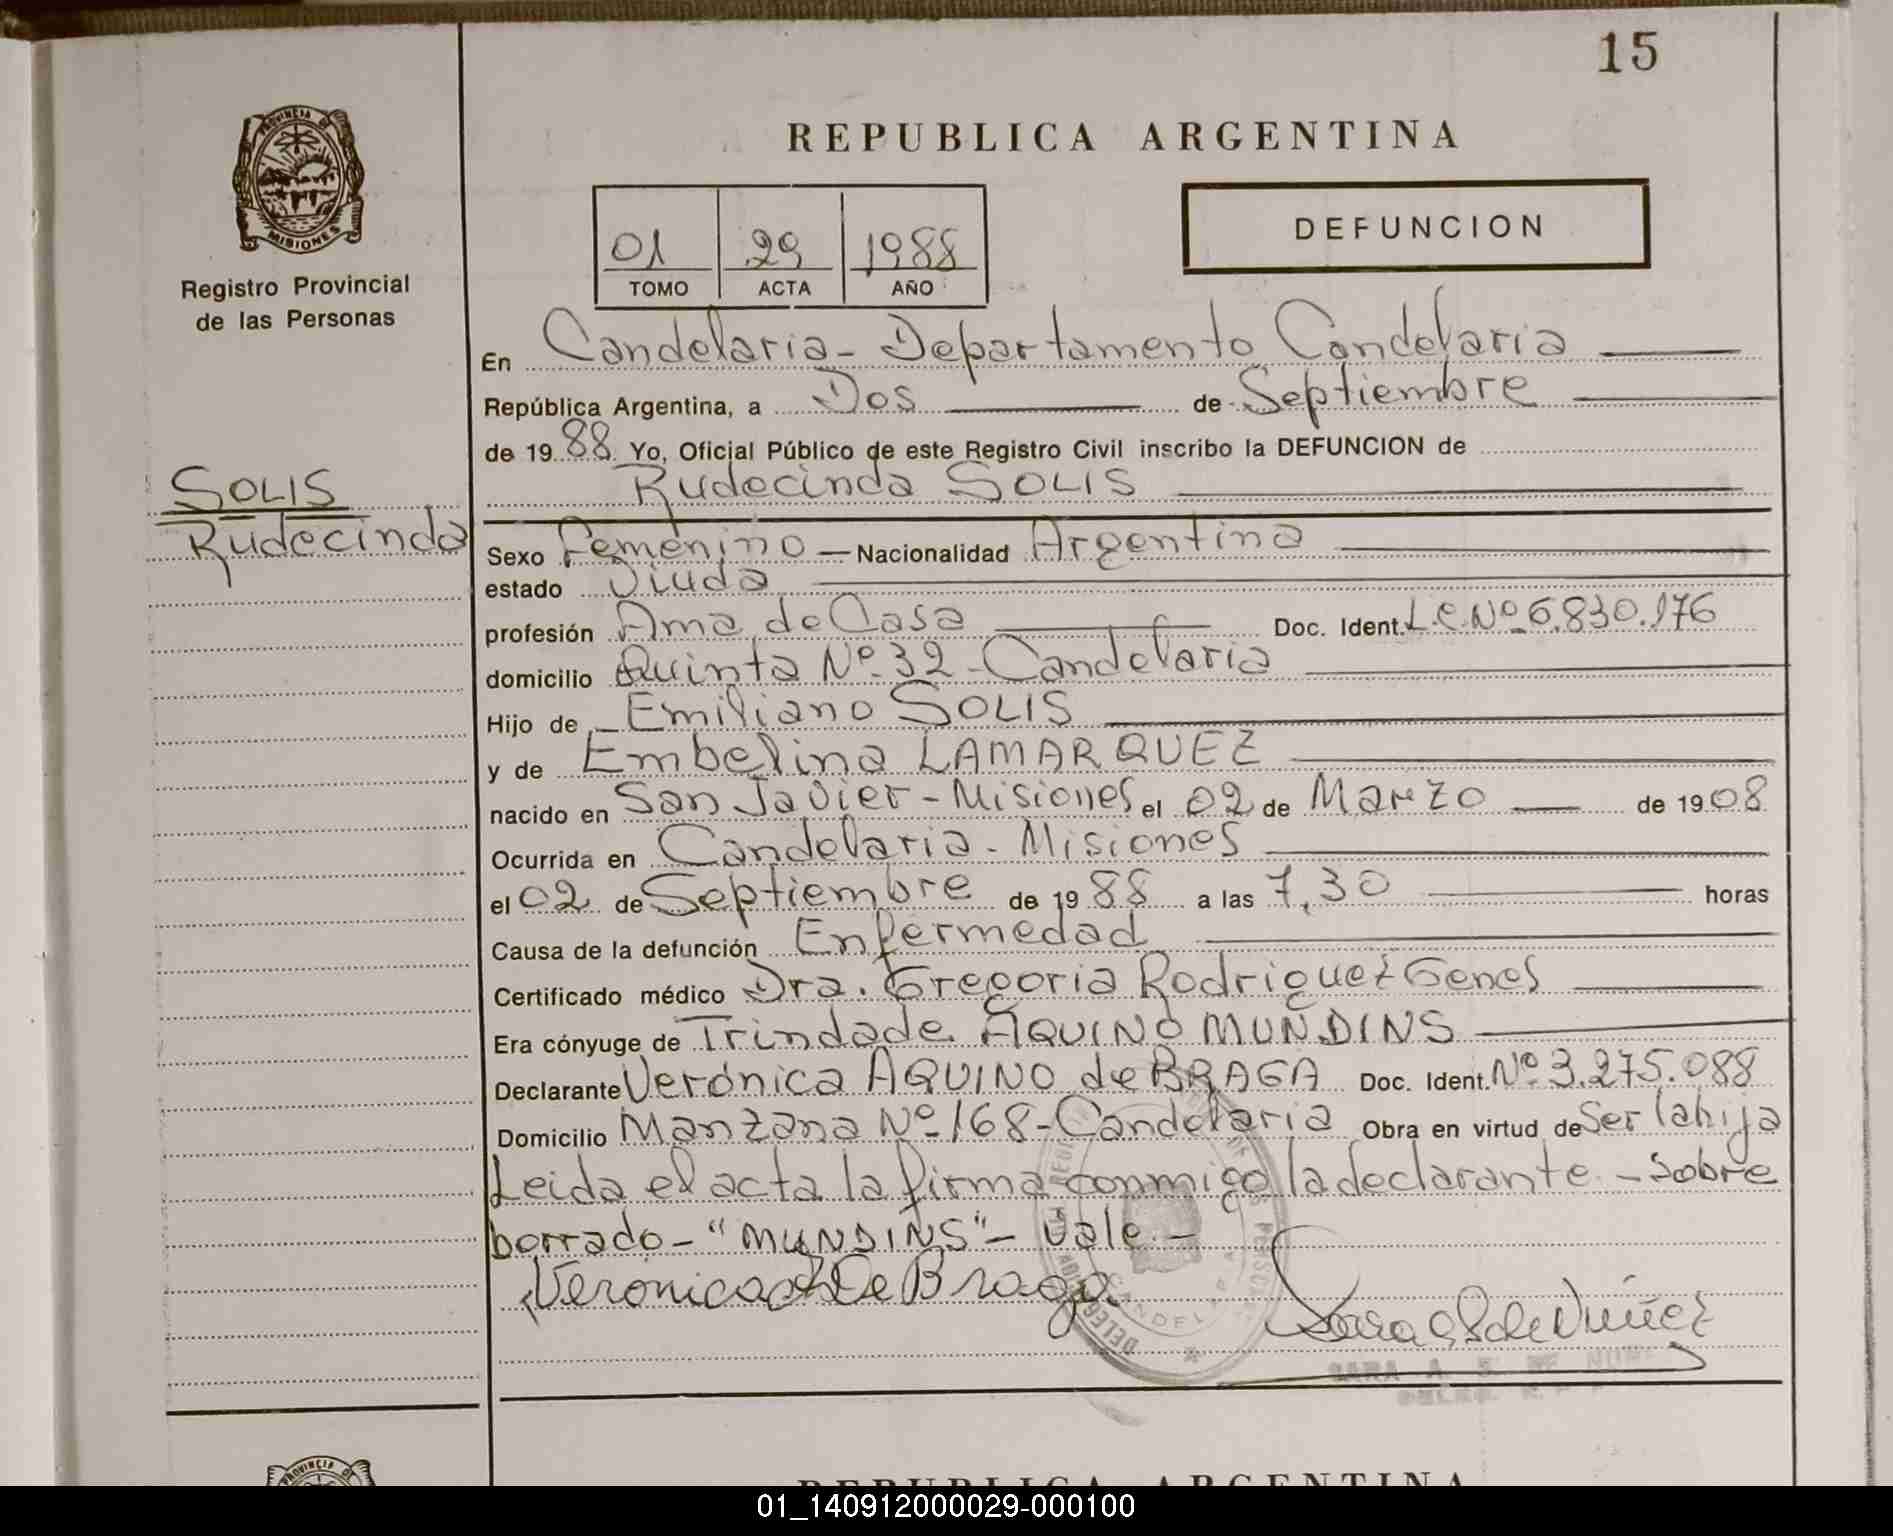 15
PROVINCIA DE
MISIONES
Registro Provincial
de las Personas
REPUBLICA ARGENTINA
01 29 1988
TOMO ACTA AÑO
DEFUNCION
SOLIS
Rudecinda
En Candelaria - Departamento Candelaria
República Argentina, a Dos de Septiembre
de 1988 Yo, Oficial Público de este Registro Civil inscribo la DEFUNCION de
Rudecinda SOLIS
Sexo Femenino — Nacionalidad Argentina
estado Viuda
profesión Ama de Casa Doc. Ident. L.C. Nº 6.830.176
domicilio Quinta Nº 32 - Candelaria
Hijo de Emiliano SOLIS
y de Embelina LAMARQUEZ
nacido en San Javier - Misiones el 02 de Marzo de 1908
Ocurrida en Candelaria - Misiones
el 02 de Septiembre de 1988 a las 7,30 horas
Causa de la defunción Enfermedad
Certificado médico Dra. Gregoria Rodriguez Genes
Era cónyuge de Trindade AQUINO MUNDINS
Declarante Verónica AQUINO de BRAGA Doc. Ident. Nº 3.275.088
Domicilio Manzana Nº 168 - Candelaria Obra en virtud de Ser la hija
Leida el acta la firma conmigo la declarante. - Sobre
borrado - "MUNDINS" - Vale. -
Veronica de Braga
Sara S de Nuñez
SARA A. S. DE NUÑEZ
PROVINCIA DE
REPUBLICA ARGENTINA
01_140912000029-000100